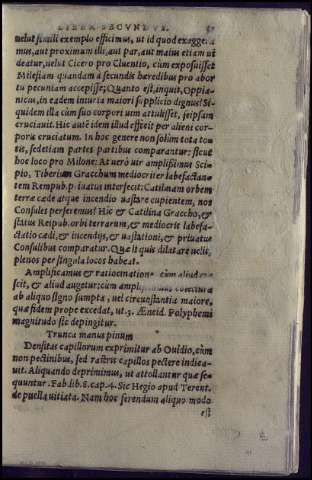 LIBER SECVNDVS.
uelut simili exemplo efficimus, ut id quod exaggera
mus, aut proximum illi, aut par, aut maius etiam ui
deatur, uelut Cicero pro Cluentio, cùm exposuisset
Milesiam quandam à secundis hæredibus pro abor
tu pecuniam accepisse; Quanto est, inquit, Oppia-
nicus, in eadem iniuria maiori supplicio dignus? Si-
quidem illa cùm suo corpori uim attulisset, seipsam
cruciauit. Hic autẽ idem illud effecit per alieni cor-
poris cruciatum. In hoc genere non solùm tota to-
tis, sed etiam partes partibus comparatur: sicut
hoc loco pro Milone: At uerò uir amplissimus Sci-
pio, Tiberium Gracchum mediocriter labefactan-
tem Rempub. priuatus interfecit: Catilinam orbem
terræ cæde atque incendio uastare cupientem, nos
Consules perferemus? Hic & Catilina Graccho, &
status Reipub. orbi terrarum, & mediocris labefa-
ctatio cædi, & incendijs, & uastationi, & priuatus
Consulibus comparatur. Quæ si quis dilatare uelit,
plenos per singula locos habeat.
Amplificamus & ratiocinatione cùm aliud cre
scit, & aliud augetur: cùm coiectura
ab aliquo signo sumpta, uel circunstantia maiore,
quæ fidem prope excedat, ut 3. Æneid. Polyphemi
magnitudo sic depingitur.
Trunca manus pinum
Densitas capillorum exprimitur ab Ouidio, cùm
non pectinibus, sed rastris capillos pectere indica-
uit. Aliquando deprimimus, ut attollantur quæ se-
quuntur. Fab. lib. 8. cap. 4. Sic Hegio apud Terent.
de puella uitiata. Nam hoc ferendum aliquo modo
est